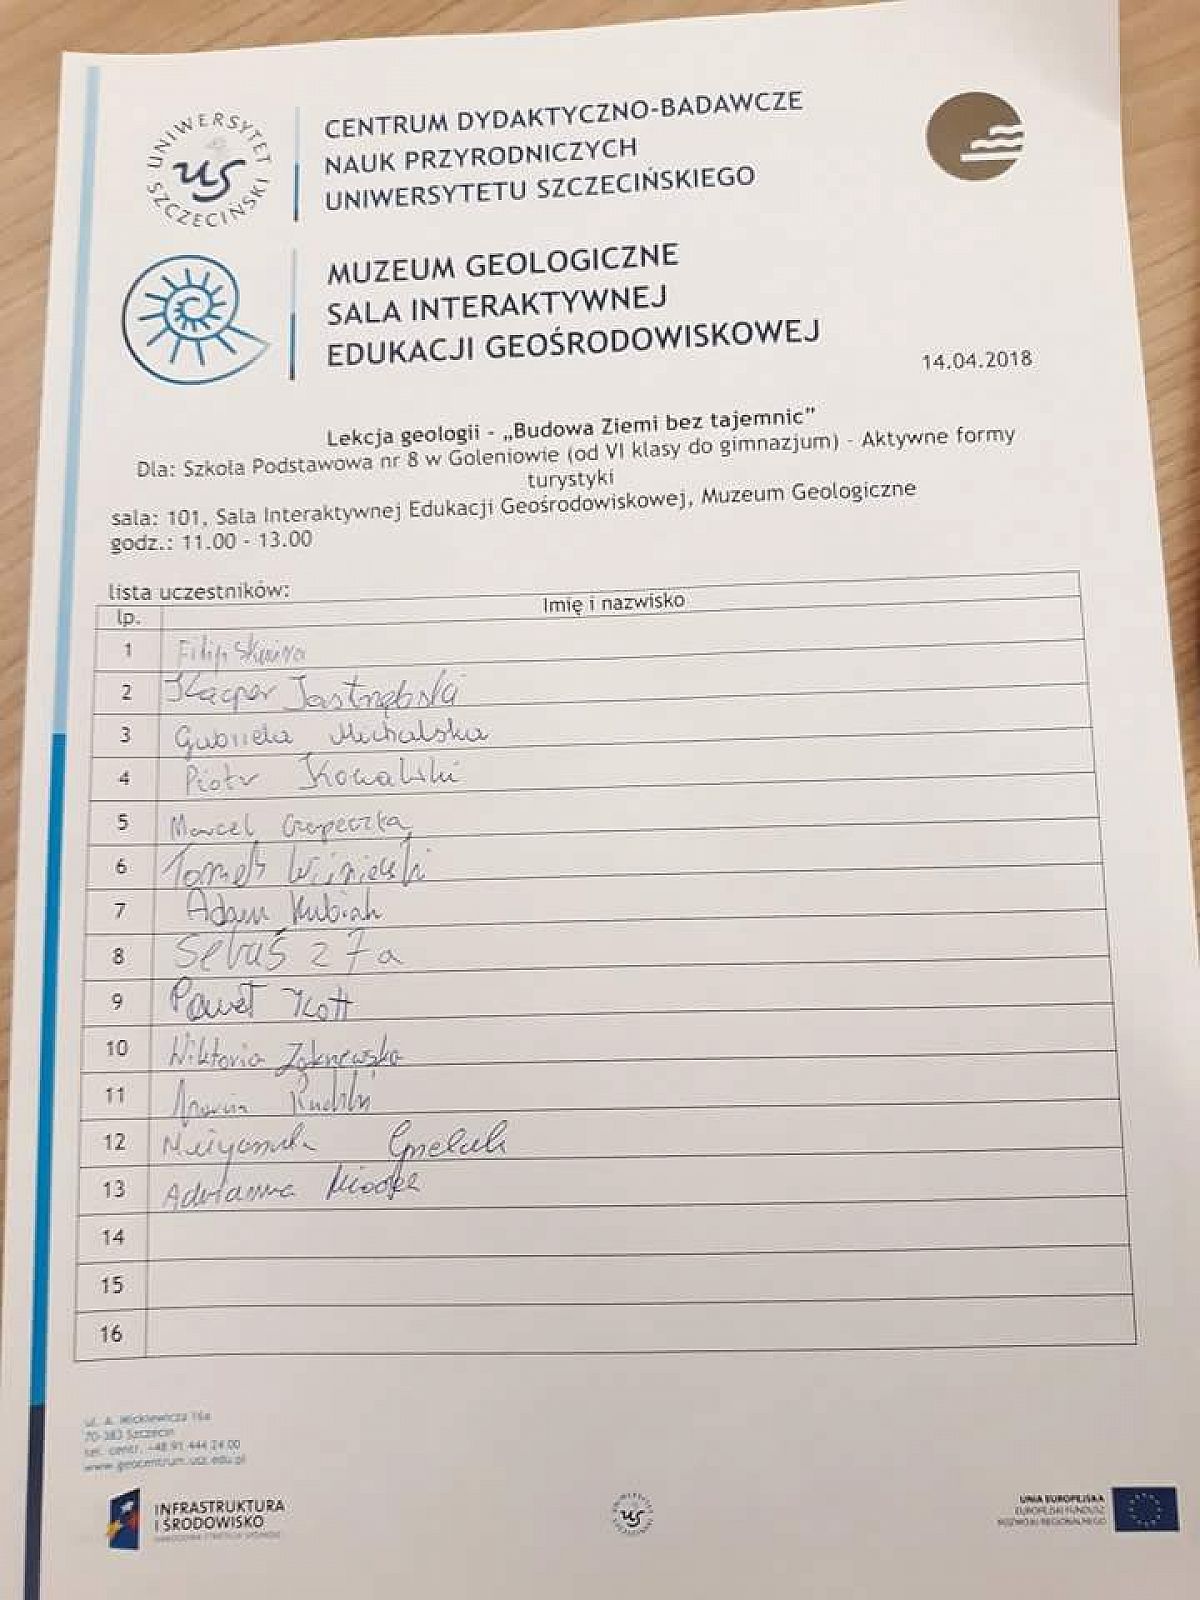 UNIWERSYTET SZCZECIŃSKI
us
CENTRUM DYDAKTYCZNO-BADAWCZE
NAUK PRZYRODNICZYCH
UNIWERSYTETU SZCZECIŃSKIEGO
MUZEUM GEOLOGICZNE
SALA INTERAKTYWNEJ
EDUKACJI GEOŚRODOWISKOWEJ
14.04.2018
Lekcja geologii - „Budowa Ziemi bez tajemnic”
Dla: Szkoła Podstawowa nr 8 w Goleniowie (od VI klasy do gimnazjum) - Aktywne formy
turystyki
sala: 101, Sala Interaktywnej Edukacji Geośrodowiskowej, Muzeum Geologiczne
godz.: 11.00 - 13.00
lista uczestników:
lp. Imię i nazwisko
1 Filip
2 Kacper Jastrzębski
3 Gabriela Michalska
4 Piotr Kowalski
5 Marcel
6 Tomek
7 Adam Kubiak
8 Sebuś z 7a
9 Paweł Kott
10 Wiktoria
11
12
13
14
15
16
ul. A. Mickiewicza 16a
70-383 Szczecin
tel. centr. +48 91 444 24 00
www.geocentrum.usz.edu.pl
INFRASTRUKTURA
I ŚRODOWISKO
NARODOWA STRATEGIA SPÓJNOŚCI
us
UNIA EUROPEJSKA
EUROPEJSKI FUNDUSZ
ROZWOJU REGIONALNEGO